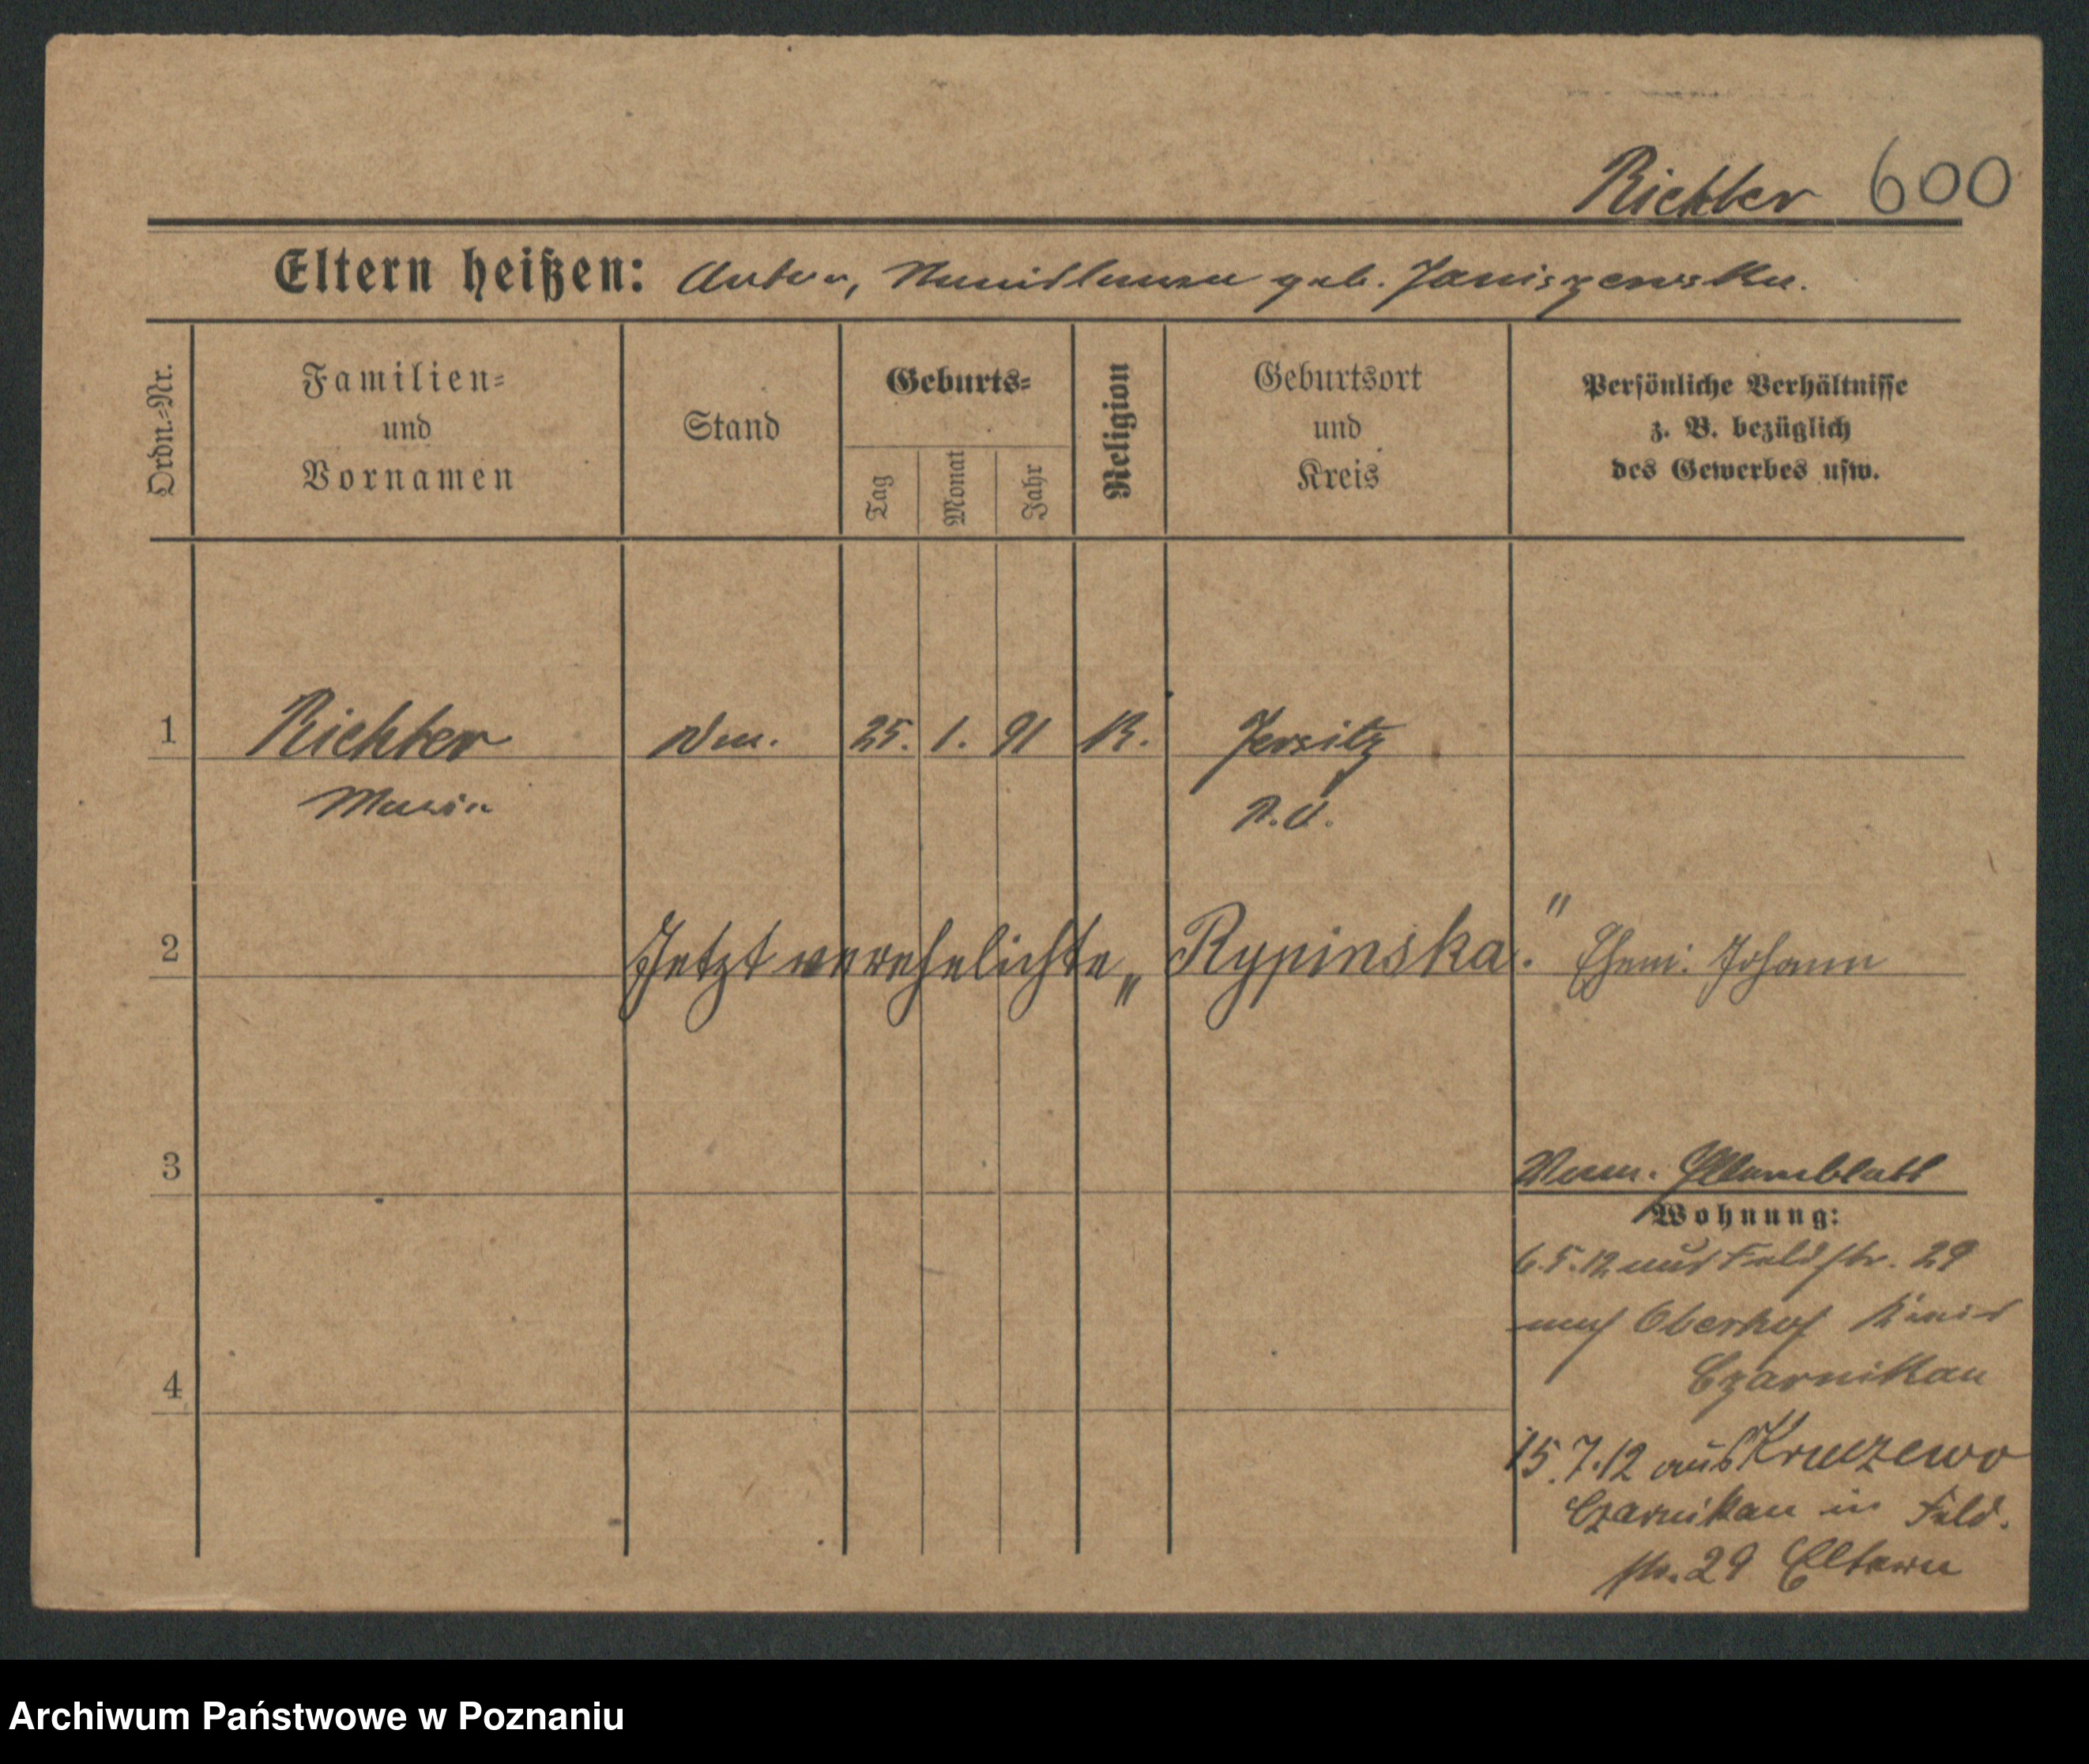 Richter 600
Eltern heißen: Anton, Stanislawa geb. Janiszewska.
Ordn.-Nr.
Familien-
und
Vornamen
Stand
Geburts-
Tag
Monat
Jahr
Religion
Geburtsort
und
Kreis
Persönliche Verhältnisse
z. B. bezüglich
des Gewerbes usw.
1 Richter 25. 1. 91 K. Jersitz
Maria P. O.
2 Jetzt verehelichte „Rypinska." Ehem. Johann
3
Wohnung:
6.5.12 aus Feldstr. 29
nach Oberhof Kreis
Czarnikau
4
15.7.12 aus Kruczewo
Czarnikau in Feld.
str. 29 Eltern
Archiwum Państwowe w Poznaniu